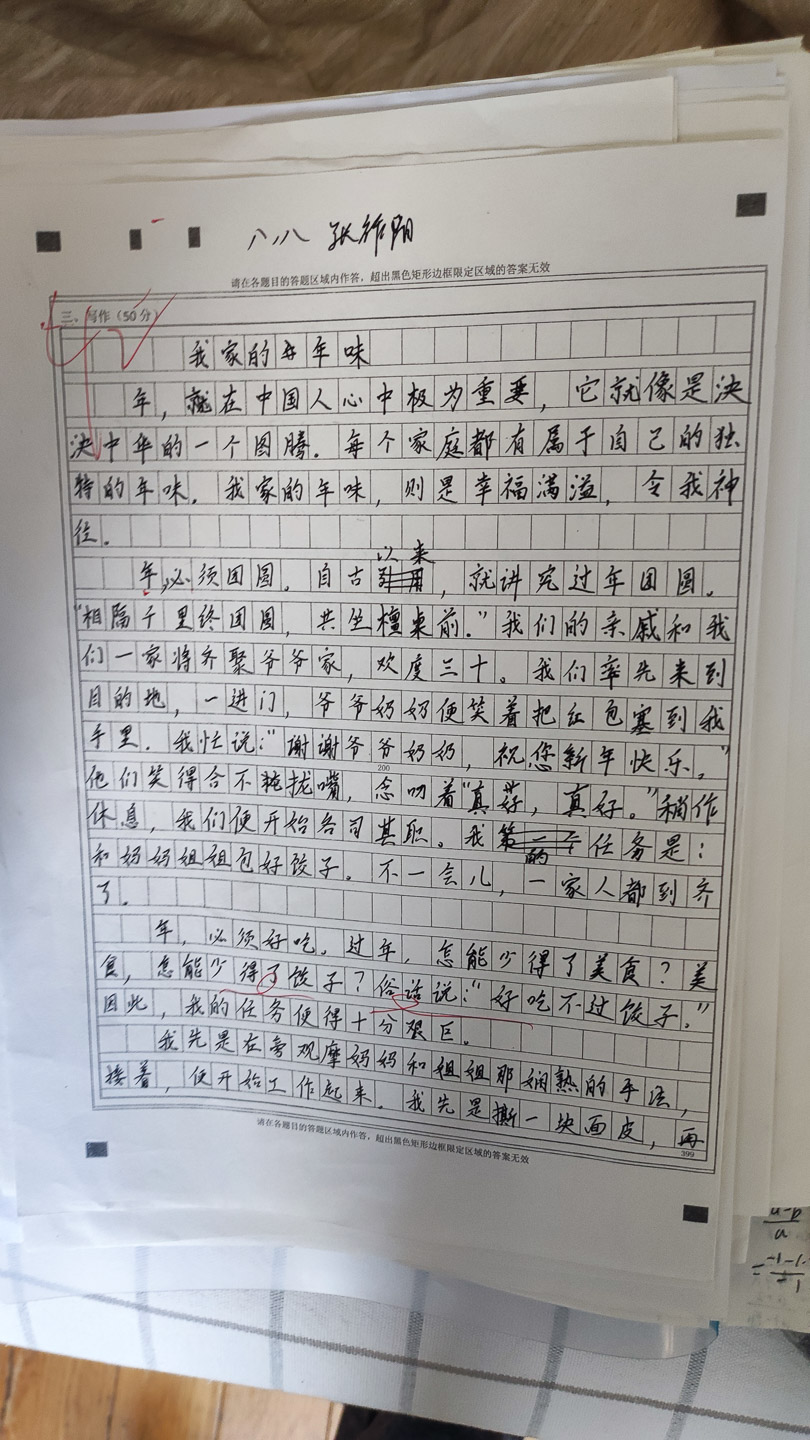 八八 张
请在各题目的答题区域内作答，超出黑色矩形边框限定区域的答案无效
三、写作（50分）
我家的年味
年，就在中国人心中极为重要，它就像是泱
泱中华的一个图腾。每个家庭都有属于自己的独
特的年味。我家的年味，则是幸福满溢，令我神
往。
以来
年，必须团圆。自古，就讲究过年团圆。
“相隔千里终团圆，共坐檀桌前。”我们的亲戚和我
们一家将齐聚爷爷家，欢度三十。我们率先来到
目的地，一进门，爷爷奶奶便笑着把红包塞到我
手里。我忙说：“谢谢爷爷奶奶，祝您新年快乐。”
200
他们笑得合不拢嘴，念叨着“真好，真好。”稍作
休息，我们便开始各司其职。我任务是：
的
和妈妈姐姐包好饺子。不一会儿，一家人都到齐
了。
年，必须好吃。过年，怎能少得了美食？美
食，怎能少得了饺子？俗话说：“好吃不过饺子。”
因此，我的任务便得十分艰巨。
我先是在旁观摩妈妈和姐姐那娴熟的手法，
接着，便开始工作起来。我先是撕一块面皮，再
399
请在各题目的答题区域内作答，超出黑色矩形边框限定区域的答案无效